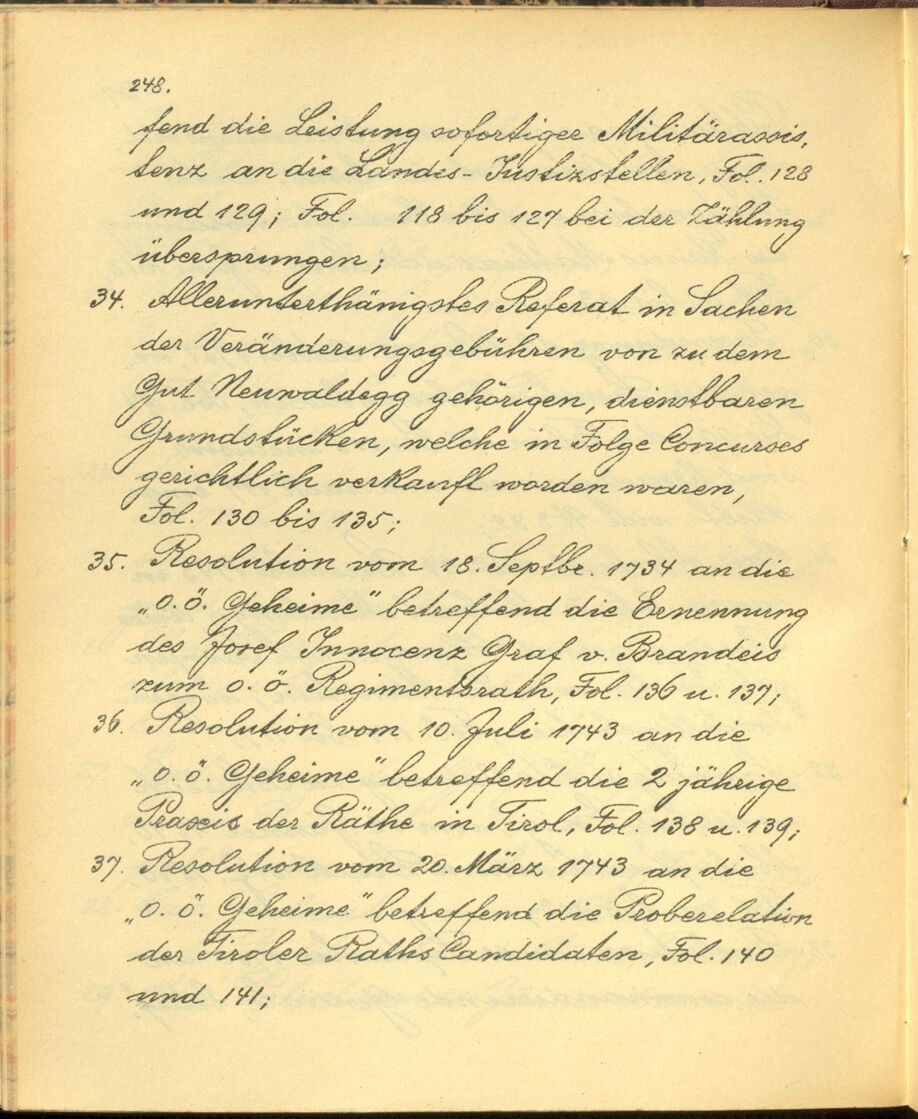 248.
fend die Leistung sofortiger Militärassis,
tenz an die Landes- Justizstellen, Fol. 128
und 129; Fol. 118 bis 127 bei der Zählung
übersprungen;
34. Allerunterthänigstes Referat in Sachen
der Veränderungsgebühren von zu dem
Gut Neuwaldegg gehörigen, dienstbaren
Grundstücken, welche in Folge Concurses
gerichtlich verkauft worden waren,
Fol. 130 bis 135;
35. Resolution vom 18. Septbr. 1734 an die
„o. ö. Geheime" betreffend die Ernennung
des Josef Innocenz Graf v. Brandeis
zum o. ö. Regimentsrath, Fol. 136 u. 137;
36. Resolution vom 10. Juli 1743 an die
„o. ö. Geheime" betreffend die 2 jährige
Praxis der Räthe in Tirol, Fol. 138 u. 139;
37. Resolution vom 20. März 1743 an die
„o. ö. Geheime" betreffend die Proberelation
der Tiroler Raths Candidaten, Fol. 140
und 141;